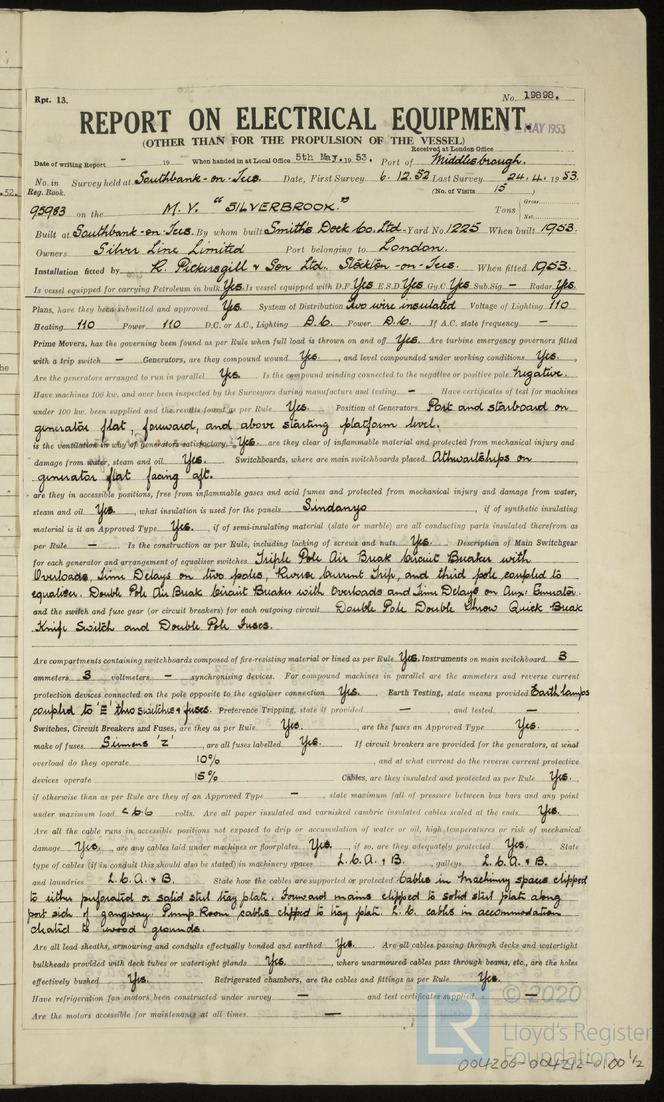 Rpt. 13.
No. 19898.
REPORT ON ELECTRICAL EQUIPMENT.
MAY 1953
(OTHER THAN FOR THE PROPULSION OF THE VESSEL)
Received at London Office
Date of writing Report - 19 When handed in at Local Office 5th May. 19 53. Port of Middlesbrough.
No. in Survey held at Southbank-on-Tees. Date, First Survey 6.12.52 Last Survey 24.4.1953.
Reg. Book. (No. of Visits 15)
52.
95983 on the M.V. "SILVERBROOK." Tons { Gross
Net
Built at Southbank-on-Tees. By whom built Smith's Dock Co. Ltd. Yard No. 1225 When built 1953.
Owners Silver Line Limited Port belonging to London.
Installation fitted by R. Pickersgill & Son Ltd. Stockton-on-Tees. When fitted 1953.
Is vessel equipped for carrying Petroleum in bulk Yes. Is vessel equipped with D.F. Yes E.S.D. Yes Gy.C. Yes Sub.Sig. - Radar Yes.
Plans, have they been submitted and approved Yes. System of Distribution Two wire insulated Voltage of Lighting 110
Heating 110 Power 110 D.C. or A.C., Lighting D.C. Power D.C. If A.C. state frequency -
Prime Movers, has the governing been found as per Rule when full load is thrown on and off Yes. Are turbine emergency governors fitted
with a trip switch - Generators, are they compound wound Yes. , and level compounded under working conditions Yes.
Are the generators arranged to run in parallel Yes. Is the compound winding connected to the negative or positive pole Negative.
Have machines 100 kw. and over been inspected by the Surveyors during manufacture and testing - Have certificates of test for machines
he
under 100 kw. been supplied and the results found as per Rule Yes. Position of Generators Port and starboard on
generator flat, forward, and above starting platform level.
is the ventilation in way of generators satisfactory Yes. are they clear of inflammable material and protected from mechanical injury and
damage from water, steam and oil Yes. Switchboards, where are main switchboards placed Athwartships on
generator flat facing aft.
are they in accessible positions, free from inflammable gases and acid fumes and protected from mechanical injury and damage from water,
steam and oil Yes. , what insulation is used for the panels Sindanyo , if of synthetic insulating
material is it an Approved Type Yes. , if of semi-insulating material (slate or marble) are all conducting parts insulated therefrom as
per Rule - Is the construction as per Rule, including locking of screws and nuts Yes. Description of Main Switchgear
for each generator and arrangement of equaliser switches Triple Pole Air Break Circuit Breaker with
Overloads, Time Delays on two poles, Reverse Current Trip, and third pole coupled to
equaliser. Double Pole Air Break Circuit Breaker with Overloads and Time Delays on Aux: Generator.
and the switch and fuse gear (or circuit breakers) for each outgoing circuit Double Pole Double Throw Quick Break
Knife Switch and Double Pole Fuses.
Are compartments containing switchboards composed of fire-resisting material or lined as per Rule Yes. Instruments on main switchboard 3
ammeters 3 voltmeters - synchronising devices. For compound machines in parallel are the ammeters and reverse current
protection devices connected on the pole opposite to the equaliser connection Yes. Earth Testing, state means provided Earth lamps
coupled to 'E' thro switches & fuses. Preference Tripping, state if provided - , and tested -
Switches, Circuit Breakers and Fuses, are they as per Rule Yes. , are the fuses an Approved Type Yes.
make of fuses Siemens 'Z' , are all fuses labelled Yes. If circuit breakers are provided for the generators, at what
overload do they operate 10% , and at what current do the reverse current protective
devices operate 15% Cables, are they insulated and protected as per Rule Yes.
if otherwise than as per Rule are they of an Approved Type - , state maximum fall of pressure between bus bars and any point
under maximum load <6.6 volts. Are all paper insulated and varnished cambric insulated cables sealed at the ends Yes.
Are all the cable runs in accessible positions not exposed to drip or accumulation of water or oil, high temperatures or risk of mechanical
damage Yes. , are any cables laid under machines or floorplates Yes. , if so, are they adequately protected Yes. State
type of cables (if in conduit this should also be stated) in machinery spaces L.C.A. & B. , galleys L.C.A. & B.
and laundries L.C.A. & B. State how the cables are supported or protected Cables in machinery spaces clipped
to either perforated or solid steel tray plate. Forward mains clipped to solid steel plate along
port side of gangway. Pump Room cables clipped to tray plate. L.C. cables in accommodation
cleated to wood grounds.
Are all lead sheaths, armouring and conduits effectually bonded and earthed Yes. Are all cables passing through decks and watertight
bulkheads provided with deck tubes or watertight glands Yes. , where unarmoured cables pass through beams, etc., are the holes
effectively bushed Yes. Refrigerated chambers, are the cables and fittings as per Rule Yes.
Have refrigeration fan motors been constructed under survey - and test certificates supplied -
Are the motors accessible for maintenance at all times -
© 2020
Lloyd's Register
Foundation
LR
004206-004212-0100 1/2